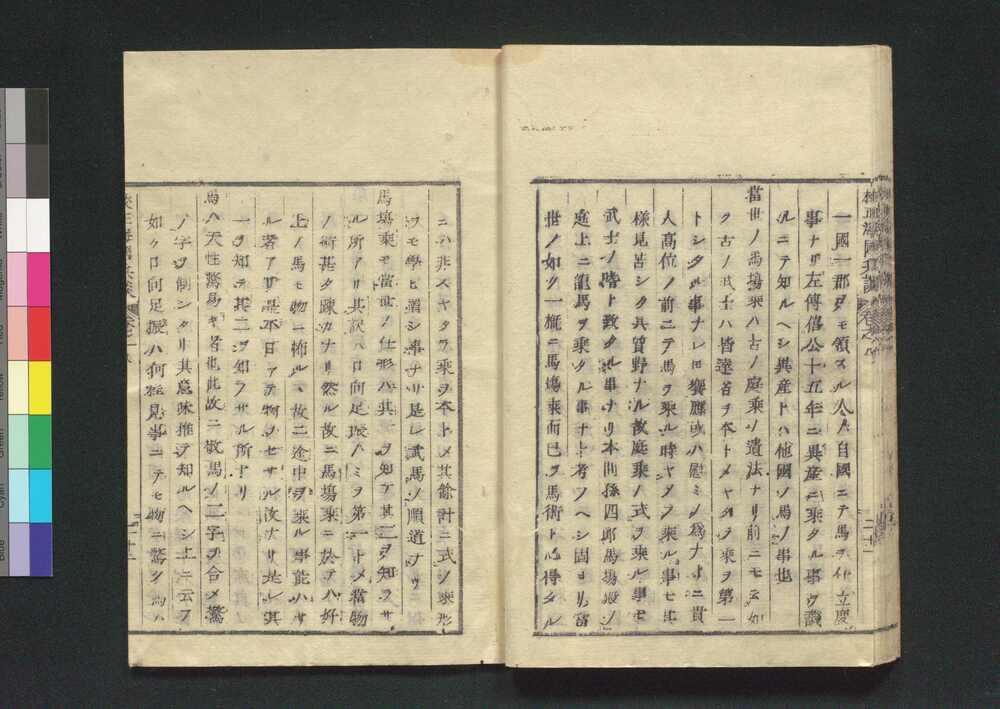 一國一郡ヲモ領スル人々自國ニテ馬ヲ仕立度
事ナリ左傳僖公十五年ニ異産ニ乘タル事ヲ譏
ルニテ知ルヘシ異産トハ他國ノ馬ノ事也
當世ノ馬塲乘ハ古ノ庭乘ノ遺法ナリ前ニモ云如
ク古ノ武士ハ皆達者ヲ本トメヤタラ乘ヲ第一
トシタル事ナレ𪜈饗膳或ハ慰ミノ爲ナトニ貴
人高位ノ前ニテ馬ヲ乘ル時ヤタラ乘ル事モ
樣見苦シク其質野ナル故庭乘ノ式ヲ乘ル事モ
武士ノ階致タル事ナリ本間孫四郎馬塲殿ノ
庭上ニ龍馬ヲ乘タル事ナト考フヘシ固ヨリ當
世ノ如ク一概ニ馬塲乘而已ヲ馬術ト心得タル
ニハ非スヤタラ乘ヲ本トメ其餘計ニ式ノ乘形
ヲモ學ヒ置シ事ナリ是レ武馬ノ順道ナリ
馬塲乘モ當世ノ仕形ハ其一ヲ知テ其二ヲ知ラサ
ル所アリ其訳ハ口向足振ノミヲ第一トメ當物
ノ術甚タ踈カナリ然ル故ニ馬塲乘ニ於テハ好
上ノ馬モ物ニ怖ルヽ故ニ途中ヲ乘ル事能ハサ
ル者アリ是平日アテ物ヲセサル故ナリ是レ其
一ヲ知テ其二ヲ知ラサル所ナリ
馬ハ天性驚易キ者也此故ニ敬馬ノ二字ヲ合メ驚
ノ字ヲ制シタリ其意味推テ知ルヘシ上ニ云フ
如ク口向足振ハ何程見事ニテモ物ニ驚ク馬ハ